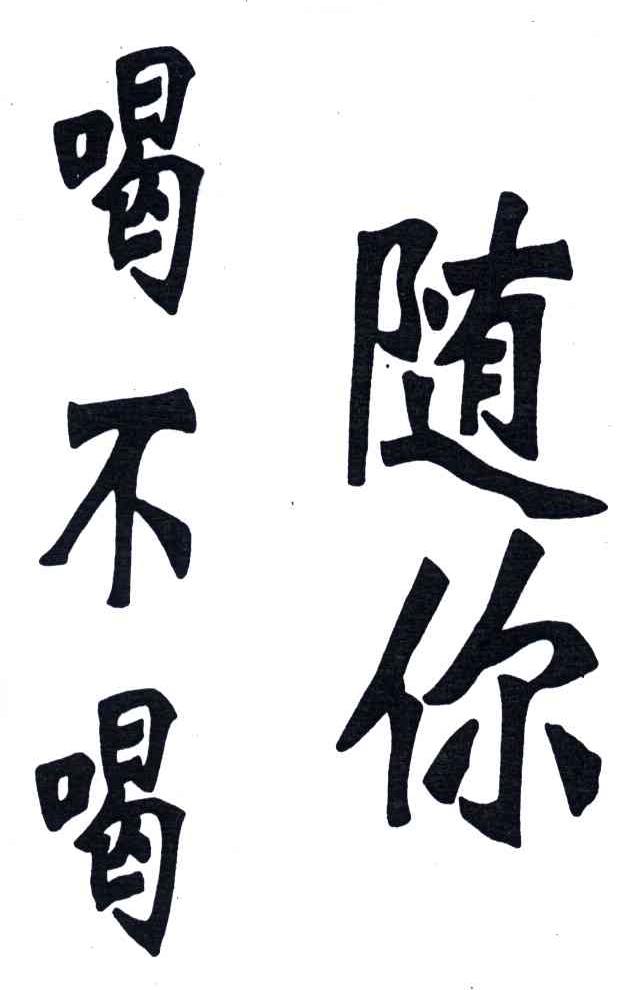 随你
喝不喝